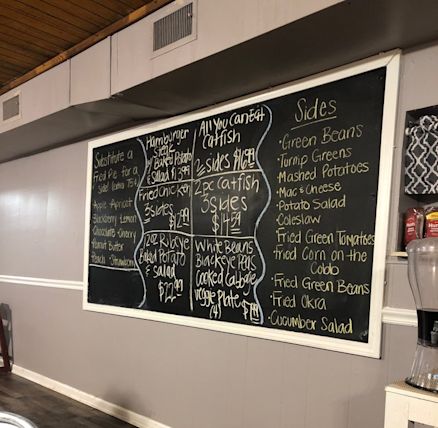 Substitute a
Fried Pie for a
side! (Extra 75¢)
Apple Apricot
Blackberry Lemon
Chocolate Cherry
Peanut Butter
Peach Strawberry
Hamburger
Steak
w/ Baked Potato
& Salad
Fried Chicken
3 Sides
12oz Ribeye
Baked Potato
& Salad
All You Can Eat
Catfish
2 sides
2 pc Catfish
3 sides
White Beans
Blackeye Peas
Cooked Cabbage
Veggie Plate
(4)
Sides
·Green Beans
·Turnip Greens
·Mashed Potatoes
·Mac & Cheese
·Potato Salad
·Coleslaw
·Fried Green Tomatoes
·Fried Corn on the
Cobb
·Fried Green Beans
·Fried Okra
·Cucumber Salad